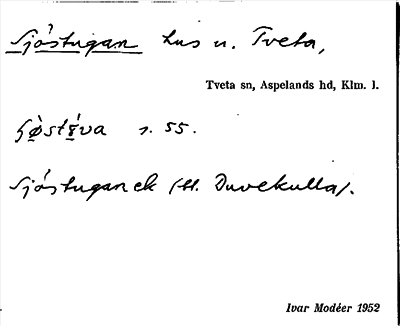 Sjöstugan hus u. Tveta,
Tveta sn, Aspelands hd, Klm. l.
s. 55.
Sjöstugan ek (st. Duvekulla).
Ivar Modéer 1952